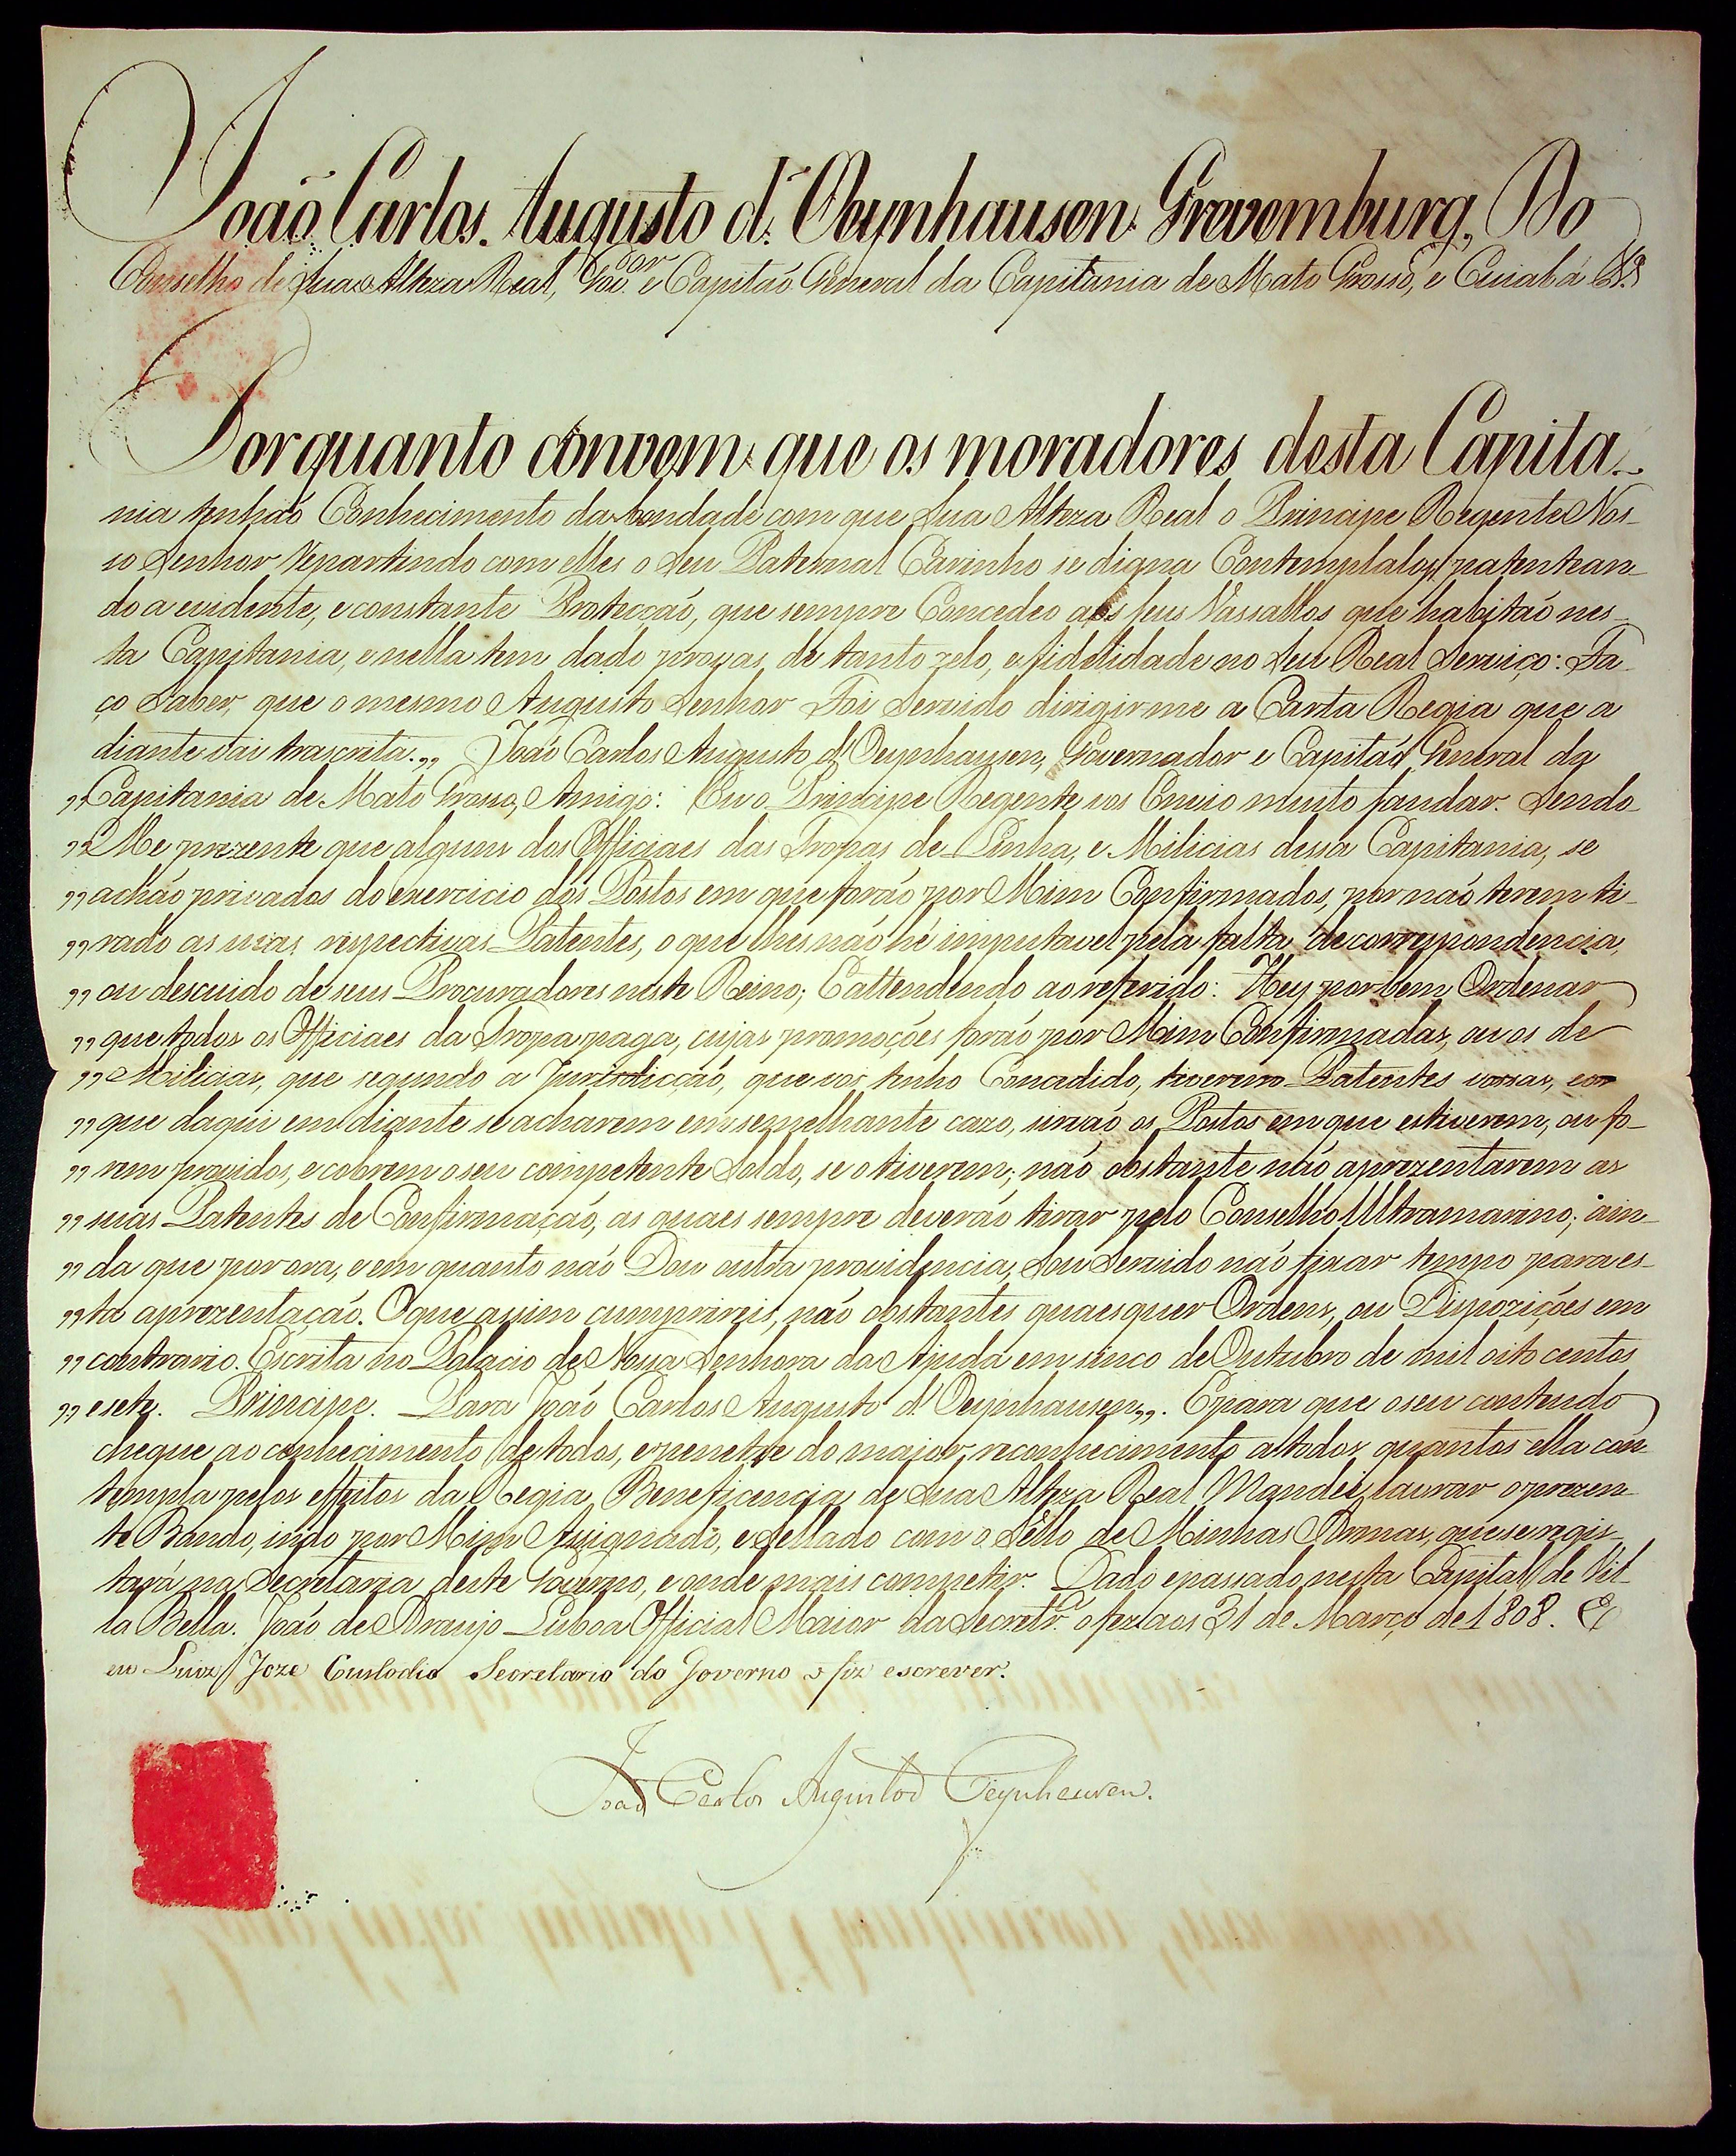 João Carlos Augusto d'Oeynhausen Grevemburg, Do
Conselho de Sua Alteza Real, Gov.dor e Capitaõ General da Capitania de Mato Grosso, e Cuiabá &.ª
Porquanto convem que os moradores desta Capita-
nia tenhaõ Conhecimento da bondade com que Sua Alteza Real o Principe Regente Nos-
so Senhor Repartindo com elles o Seu Paternal Carinho se digna Contemplalos, patentean-
do a evidente, e constante Protecçaõ, que sempre Concedeo aos seus Vassallos que habitaõ nes-
ta Capitania, e nella tem dado provas de tanto zelo, e fidelidade no Seu Real Serviço: Fa-
ço Saber, que o mesmo Augusto Senhor Foi Servido dirigirme a Carta Regia que a
diante vai trascrita. „ Joaõ Carlos Augusto d'Oeynhausen, Governador e Capitaõ General da
„ Capitania de Mato Grosso, Amigo: Eu o Principe Regente vos Envio muito saudar. Sendo
„ Me prezente que alguns dos Officiaes das Tropas de Linha, e Milicias dessa Capitania, se
„ achaõ privados do exercicio dos Postos em que foraõ por Mim Confirmados, por naõ terem ti-
„ rado as suas respectivas Patentes, o que lhes naõ hé imputavel pela falta de correspondencia,
„ ou descuido de seus Procuradores neste Reino; E attendendo ao referido: Hey por bem Ordenar
„ que todos os Officiaes da Tropa paga, cujas promoções foraõ por Mim Confirmadas, ou os de
„ Milicias, que segundo a Jurisdicçaõ, que vos tenho Concedido, tiverem Patentes vossas, e os
„ que daqui em diante se acharem em semelhante cazo, sirvaõ os Postos em que estiverem, ou fo-
„ rem providos, e cobrem o seu competente Soldo, se o tiverem; naõ obstante naõ aprezentarem as
„ suas Patentes de Confirmaçaõ, as quaes sempre deveraõ tirar pelo Conselho Ultramarino; ain-
„ da que por ora, e em quanto naõ Dou outra providencia, Sou Servido naõ fixar tempo para es-
„ ta aprezentaçaõ. O que assim cumprireis, naõ obstantes quaesquer Ordens, ou Dispozições em
„ contrario. Escrita no Palacio de Nossa Senhora da Ajuda em sinco de Outubro de mil oito centos
„ e sete. Principe. Para Joaõ Carlos Augusto d'Oeynhausen „. E para que o seu contendo
chegue ao conhecimento de todos, e penetre do maior reconhecimento a todos quantos ella con-
templa pelos effeitos da Regia Beneficencia de Sua Alteza Real Mandei lavrar o prezen-
te Bando, indo por Mim Assignado, e Sellado com o Sello de Minhas Armas, que se regis-
tará na Secretaria deste Governo, e onde mais competir. Dado e passado nesta Capital de Vil-
la Bella. Joaõ de Araujo Lisboa Official Maior da Secretr.ª o fez aos 31 de Março de 1808. E
eu Luiz Joze Custodio Secretario do Governo o fiz escrever.
Joaõ Carlos Augusto d'Oeynhausen.